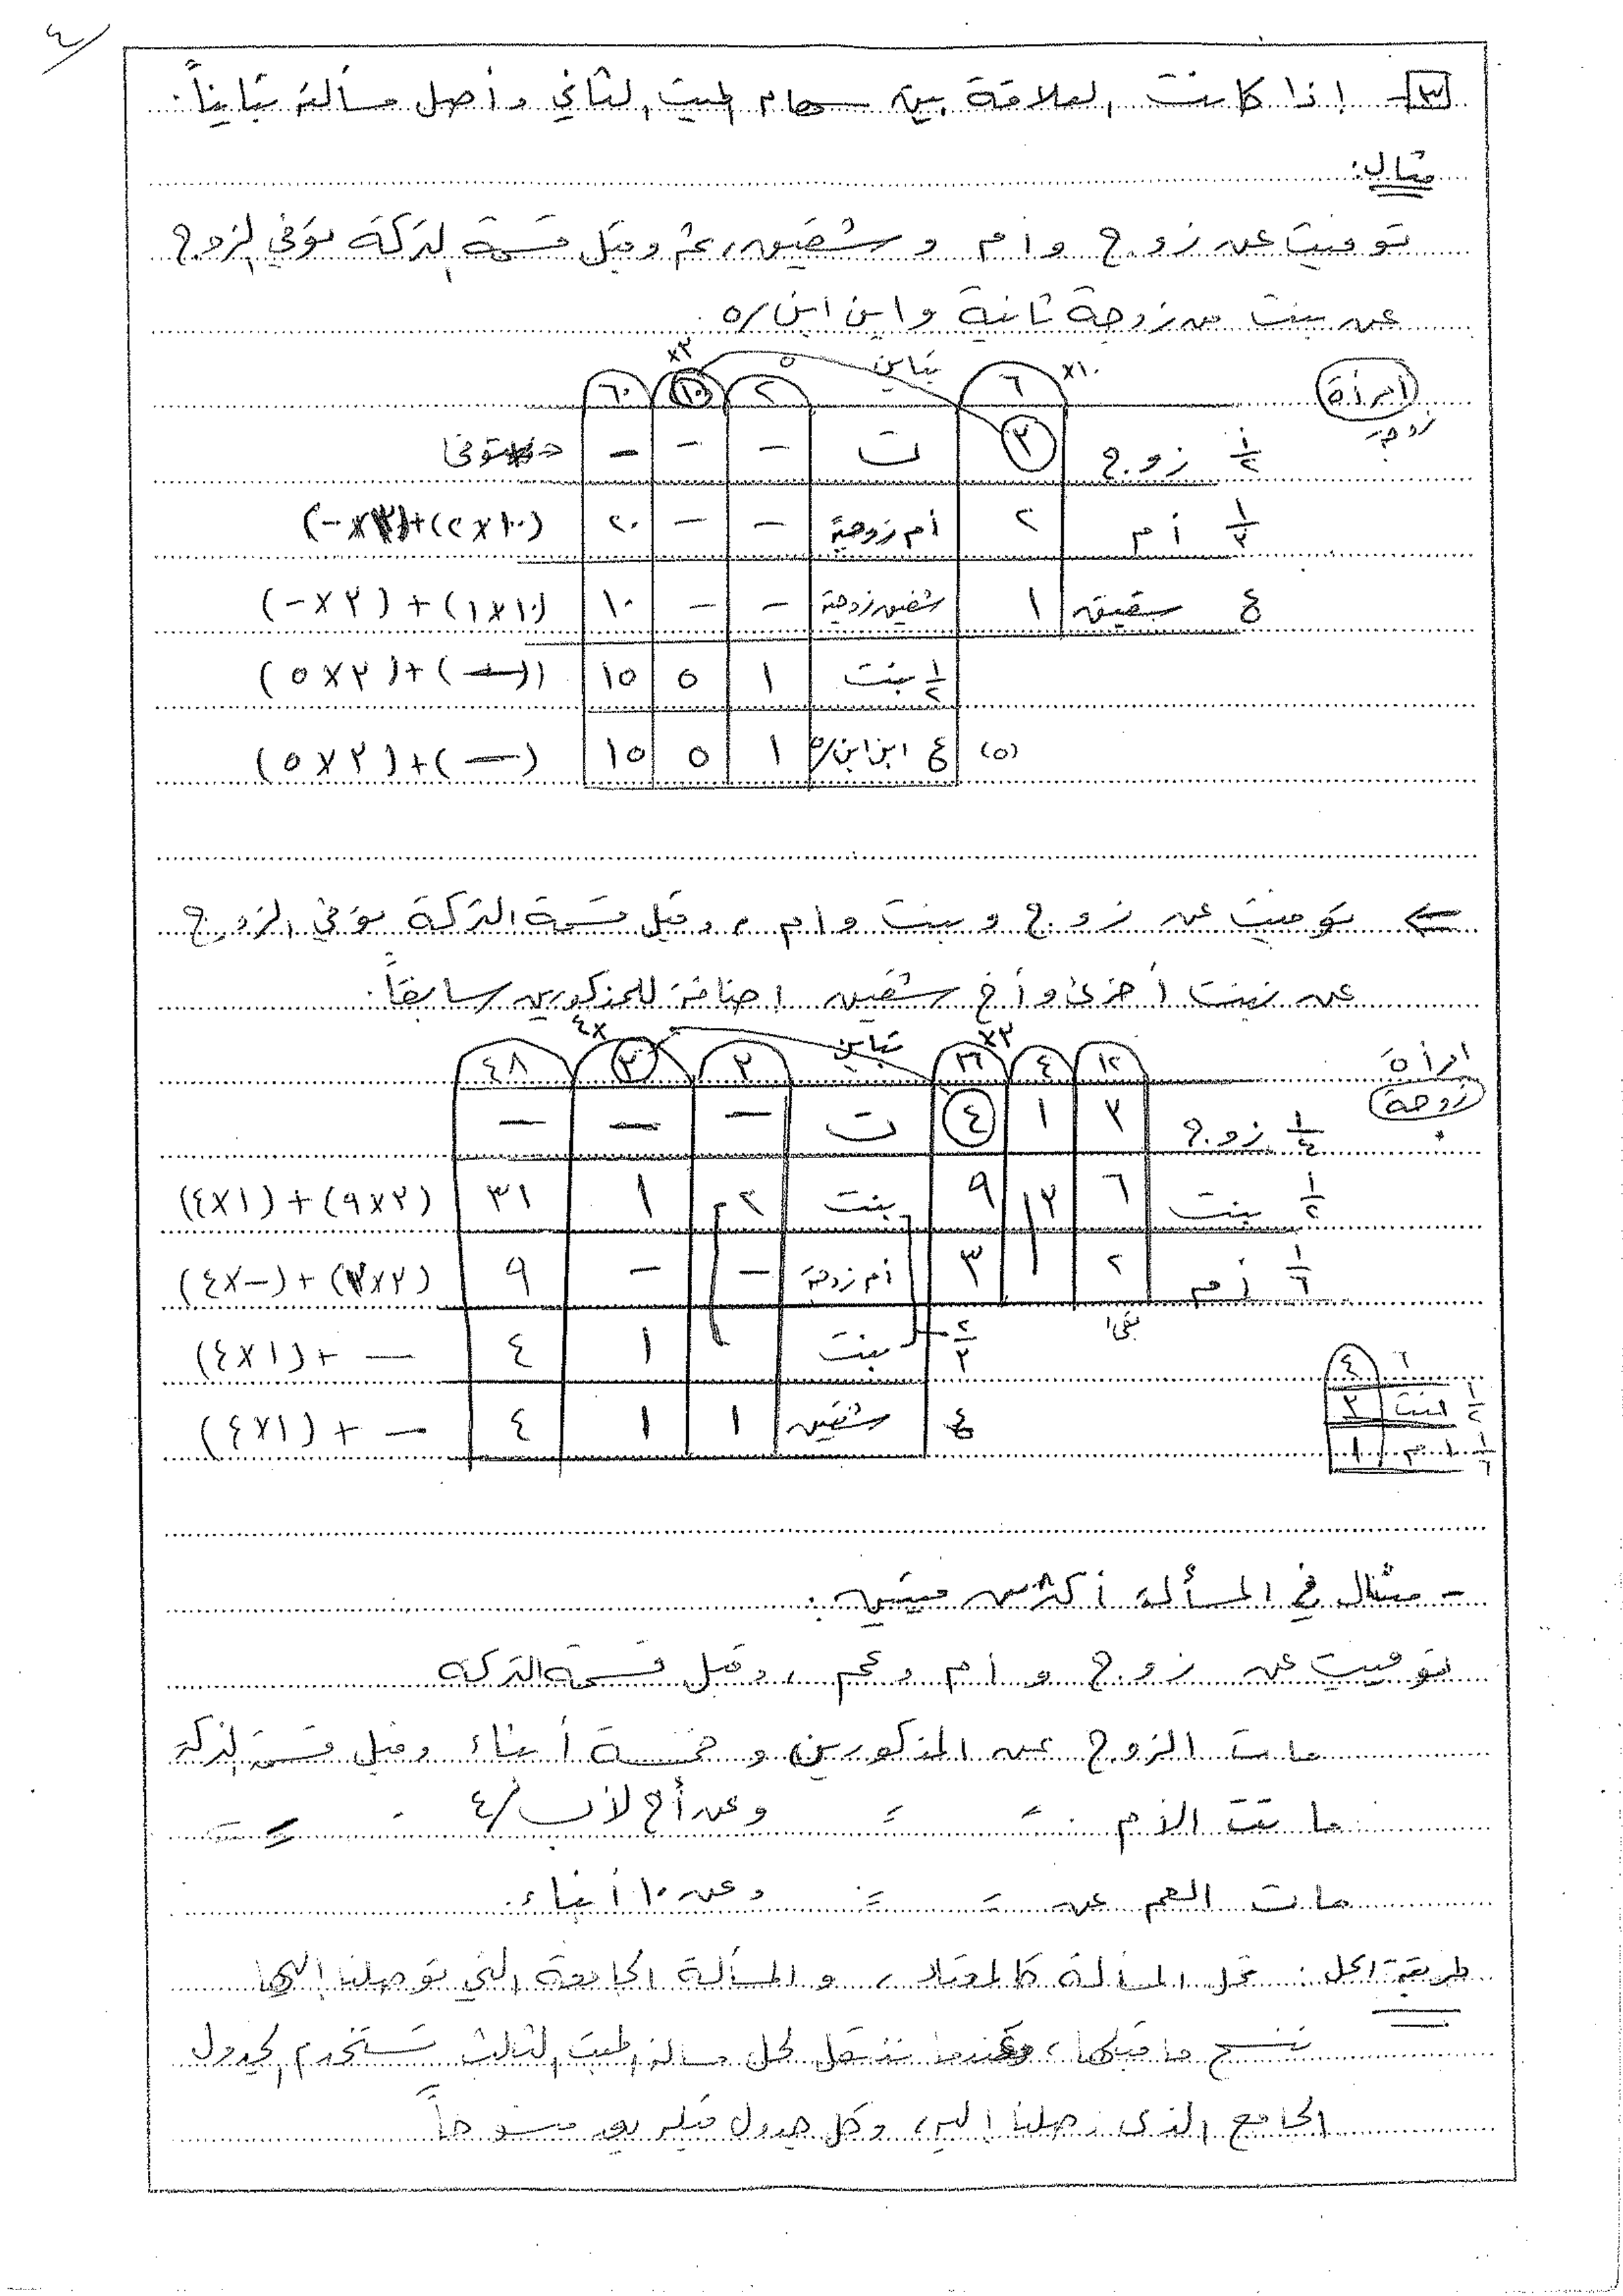 ٤
٣- إذا كانت العلاقة بين سهام الميت الثاني وأصل مسألته تبايناً.
مثال:
توفيت عن زوج وأم وشقيق، ثم وقبل قسمة التركة توفي الزوج
عن بنت من زوجة ثانية وابن ابن/٥
امرأة ٦ ×١٠ تباين ٥ ٢ ١٠ ×٣ ٦٠
زوجة
١/٢ زوج ٣ ت - - - توفى
١/٣ أم ٢ أم زوجة - - ٢٠ (٢×١٠)+(-×٣)
ع شقيق ١ شقيق زوجة - - ١٠ (١×١٠)+(-×٣)
١/٢ بنت ١ ٥ ١٥ (—)+(٥×٣)
(٥) ع ابن ابن/٥ ١ ٥ ١٥ (—)+(٥×٣)
← توفيت عن زوج وبنت وأم، وقبل قسمة التركة توفي الزوج
عن بنت أخرى وأخ شقيق إضافة للمذكورين سابقاً.
امرأة ١٢ ٤ ١٦ ×٣ تباين ٣ ٣ ٤× ٤٨
زوجة
١/٤ زوج ٣ ١ ٤ ت - - -
١/٢ بنت ٦ ٣ ٩ بنت ٢ ١ ٣١ (٩×٣)+(٤×١)
١/٦ أم ٢ ١ ٣ أم زوجة - - ٩ (٣×٣)+(٤×-)
بقي ١
٢/٣ بنت ١ ٤ — +(٤×١)
ع شقيق ١ ١ ٤ — +(٤×١)
٦ ٤
١/٢ بنت ٣
١/٦ أم ١
- مثال في المسألة أكثر من ميتين.
توفيت عن زوج وأم وعم، وقبل قسمة التركة
مات الزوج عن المذكورين وخمسة أبناء وقبل قسمة التركة
ماتت الأم = = وعن أخ لأب/٤ - = =
مات العم عن = = وعن ١٠ أبناء.
طريقة الحل: تحل المسألة كالمعتاد، والمسألة الجامعة التي توصلنا إليها
تنسخ ما قبلها، وعندما ننتقل لحل مسألة الميت الثالث نستخدم الجدول
الجامع الذي وصلنا إليه، وكل جدول قبله يعد منسوخاً